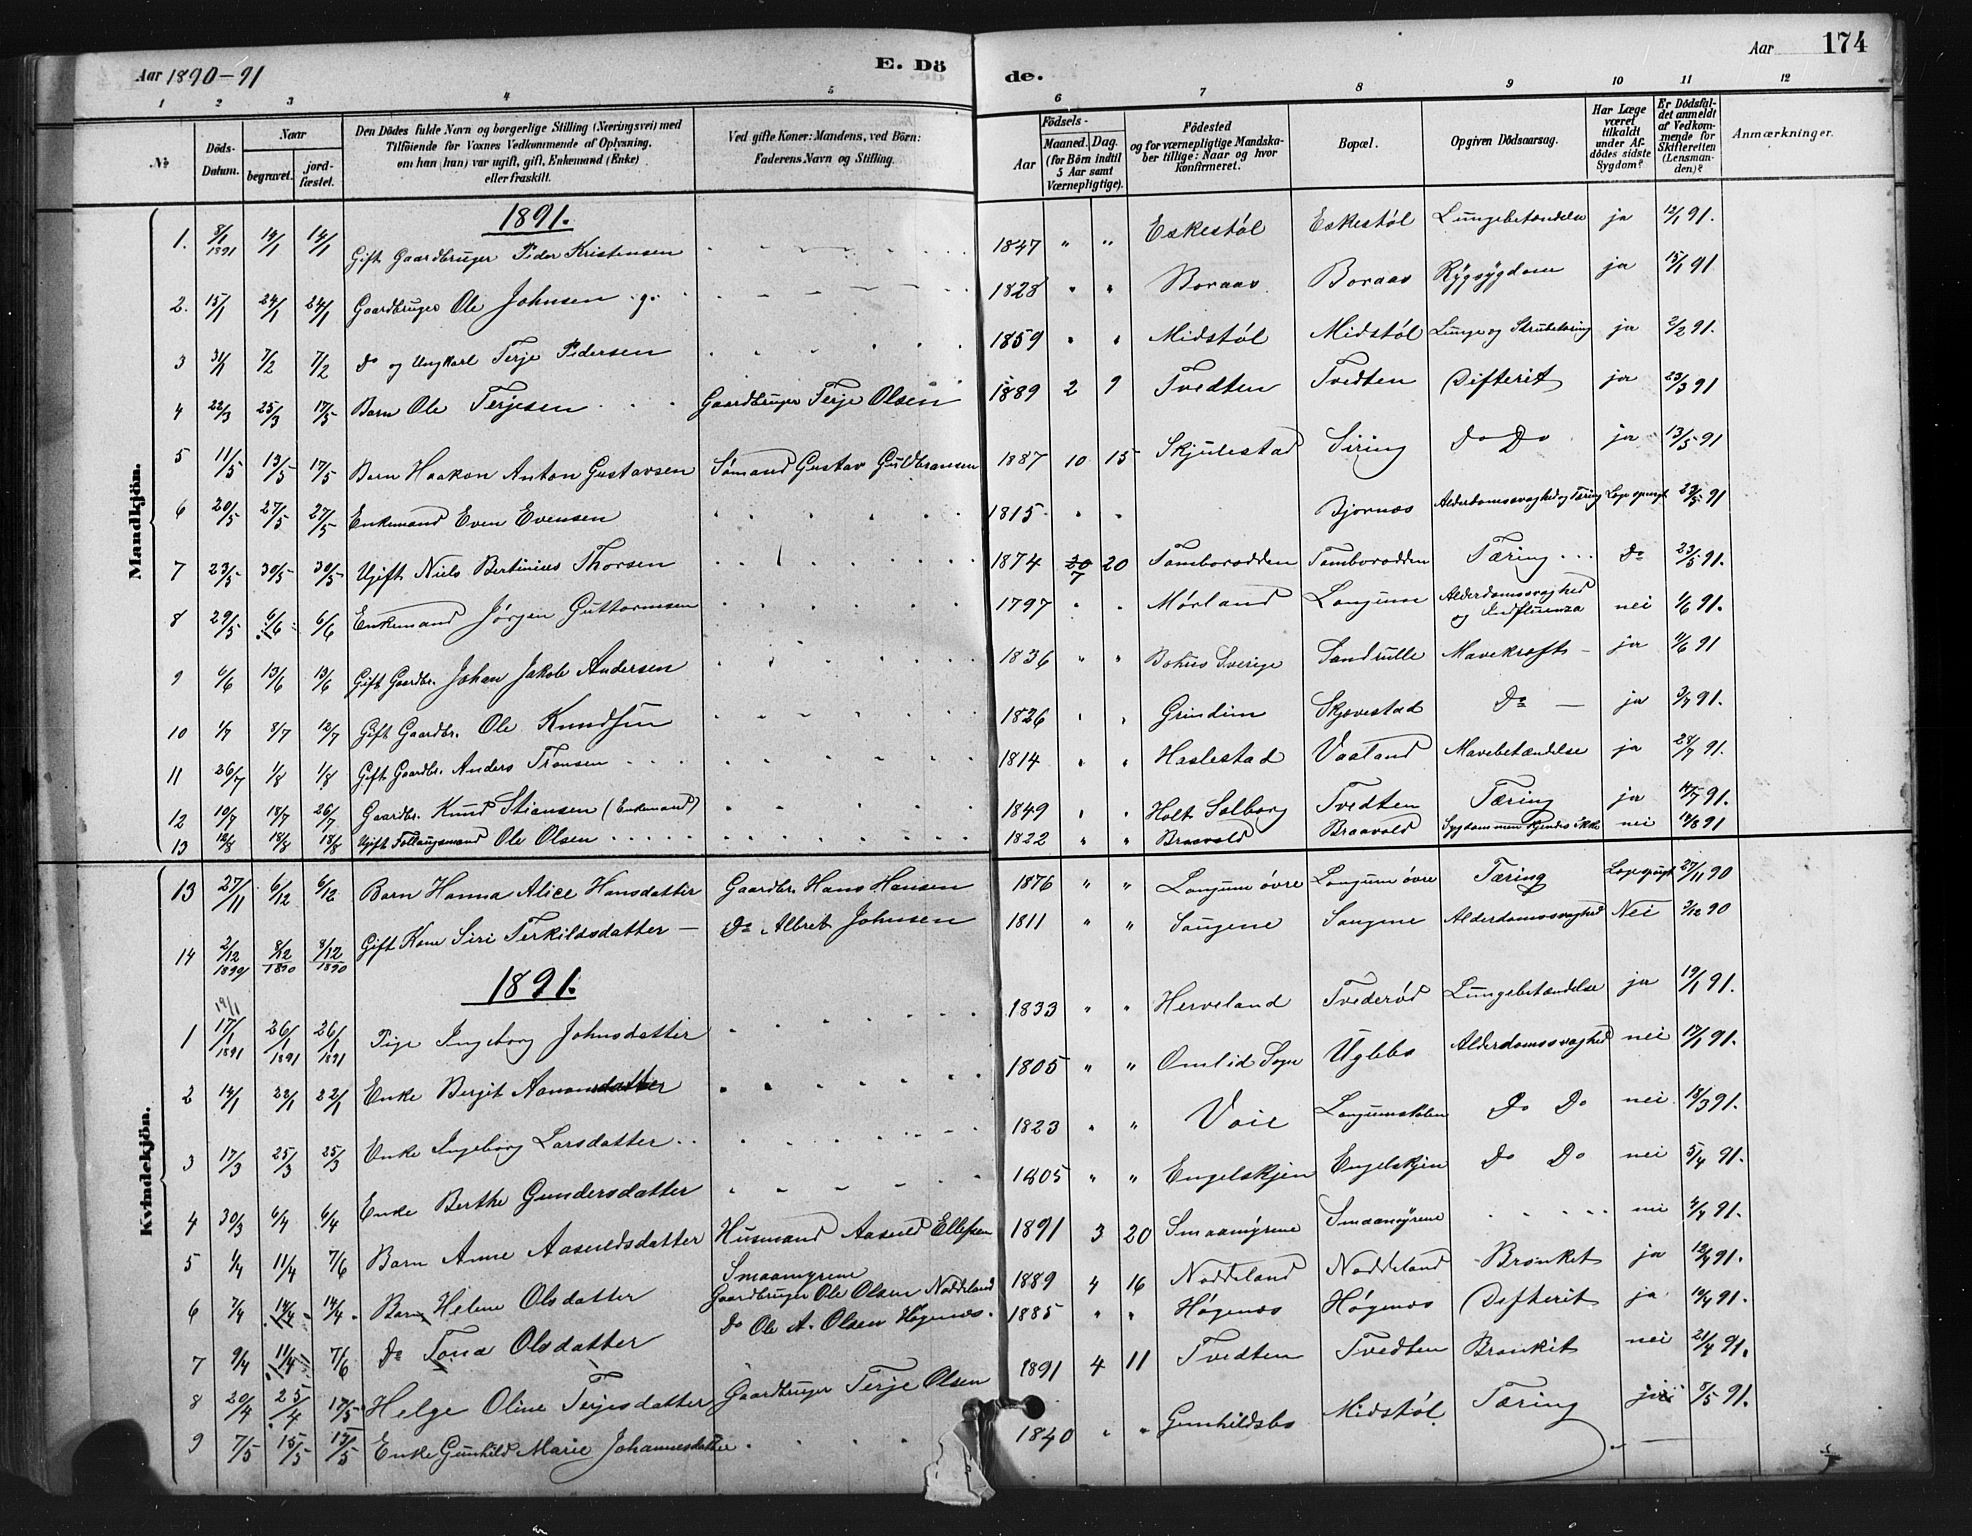 Aar 1890-91
E. Dö
de.
Aar 174
1 2 3 4 5 6 7 8 9 10 11 12
№ Döds-Datum. Naar begravet. jord-fæstet. Den Dödes fulde Navn og borgerlige Stilling (Næringsvei) med Tilföiende for Voxnes Vedkommende af Oplysning, om han (hun) var ugift, gift, Enkemand (Enke) eller fraskilt. Ved gifte Koner: Mandens, ved Börn: Faderens Navn og Stilling. Födsels- Aar Maaned. Dag. (for Börn indtil 5 Aar samt Værnepligtige). Födested og for værnepligtige Mandska-ber tillige: Naar og hvor konfirmeret. Bopæl. Opgiven Dödsaarsag. Har Læge været tilkaldt under Af-dödes sidste Sygdom? Er Dödsfal-det anmeldt af Vedkom-mende for Skifteretten (Lensman-den)? Anmærkninger.
Mandkjön.
1891.
1. 8/1 1891 14/1 14/1 Gift Gaardbruger Peder Kristensen 1847 " " Eskestøl Eskestøl Lungebetændelse ja 12/1 91.
2. 15/1 24/1 24/1 Gaardbruger Ole Johnsen g. 1828 " " Boraas Boraas Rygsygdom ja 15/1 91
3 31/1 7/2 7/2 Do og Ungkarl Terje Pedersen 1859 " " Midstøl Midstøl Lunge og Strubetæring ja 2/2 91.
4 22/3 25/3 17/5 Barn Ole Terjesen Gaardbruger Terje Olsen 1889 2 9 Tvedten Tvedten Difterit ja 23/3 91
5 11/5 13/5 17/5 Barn Haakon Anton Gustavsen Sømand Gustav Guldbransen 1887 10 15 Skjulestad Siring Do Do ja 13/5 91
6 20/5 27/5 27/5 Enkemand Even Evensen 1815 " " Bjornæs Alderdomssvaghed og Tæring 23/5 91
7 23/5 30/5 30/5 Ugift Niels Bertinius Thorsen 1874 7 20 Tamborodden Tamborodden Tæring Do 23/5 91.
8 29/5 6/6 6/6 Enkemand Jørgen Guttormsen 1797 " " Mørland Longum Alderdomssvaghed og Indfluenza nei 1/6 91.
9 6/6 13/6 13/6 Gift Gaardbr. Johan Jakob Andersen 1836 " " Bohus Sverige Sandrulle Mavekræft ja 91
10 1/7 8/7 12/7 Gift Gaardbr. Ole Knudsen 1826 " " Grindim Skjævestad Do ja 3/7 91.
11 26/7 1/8 1/8 Gift Gaardbr. Anders Tronsen 1814 " " Heslestad Vaaland Mavebetændelse ja 28/7 91.
12 10/7 18/7 26/7 Gaardbr. Knud Stiansen (Enkemand) 1849 " " Holt Solborg Tvedten Tæring ja 14/7 91.
13 12/8 18/8 18/8 Ugift Ole Olsen 1822 " " Braavold Braavold Sygdommen kjendes ikke nei 14/8 91
Kvindekjön.
13 27/11 6/12 6/12 Barn Hanna Alice Hansdatter Gaardbr. Hans Hansen 1876 " " Longum øvre Longum øvre Tæring 27/11 90
14 2/12 1890 8/12 1890 8/12 1890 Gift Kone Siri Terkildsdatter Do Albret Johnsen 1811 " " Saugene Saugene Alderdomssvaghed Nei 3/12 90
1891.
19/1
1 17/1 1891 26/1 1891 26/1 1891 Pige Ingeborg Johnsdatter 1833 " " Herveland Tvederød Lungebetændelse ja 19/1 91.
2 14/1 22/1 22/1 Enke Bergit Aanonsdatter 1805 " " Omlid Sogn Uglebo Alderdomssvaghed nei 17/1 91.
3 17/3 25/3 25/3 Enke Ingeborg Larsdatter 1823 " " Voie Longumskilen Do Do nei 18/3 91.
4 30/3 6/4 6/4 Enke Berthe Gundersdatter 1805 " " Engelskjøn Engelskjøn Do Do nei 5/4 91.
5 1/4 11/4 7/6 Barn Anne Aasuldsdatter Husmand Aasuld Ellefsen Smaamyrene 1891 3 20 Smaamyrene Smaamyrene nei 2/4 91.
6 7/4 14/4 14/4 Barn Helene Olsdatter Gaardbruger Ole Olsen Noddeland 1889 4 16 Noddeland Noddeland Bronket ja 12/4 91.
7 9/4 11/4 7/6 Do Tona Olsdatter Do Ole A. Olsen Høgenæs. 1885 " " Høgenæs Høgenæs Difterit ja 91.
8 20/4 25/4 17/5 Helge Oline Terjesdatter Gaardbruger Terje Olsen 1891 4 11 Tvedten Tvedten Bronkit nei 21/4 91.
9 7/5 15/5 15/5 Enke Gunhild Marie Johannesdatter 1840 " " Gunhildsbo Midstøl Tæring 8/5 91.